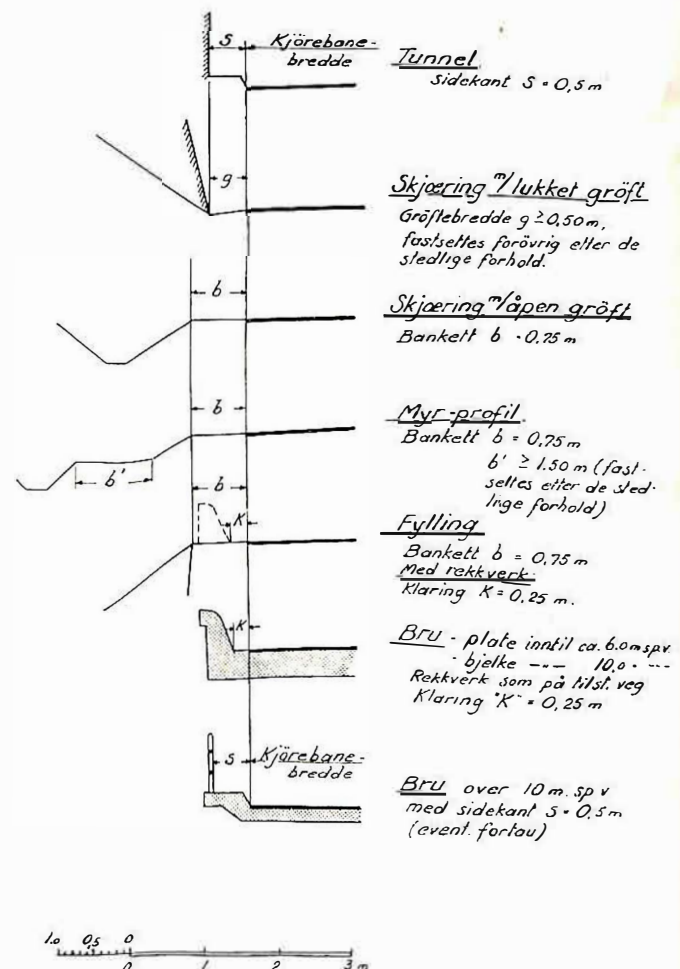 s Kjörebane-
bredde
Tunnel
Sidekant S = 0,5 m
g
Skjæring m/lukket gröft
Gröftebredde g ≥ 0,50 m,
fastsettes forövrig etter de
stedlige forhold.
b
Skjæring m/åpen gröft
Bankett b = 0,75 m
b
b'
Myr-profil
Bankett b = 0,75 m
b' ≥ 1.50 m (fast-
settes etter de sted-
lige forhold)
b
K
Fylling
Bankett b = 0,75 m
Med rekkverk:
Klaring K = 0,25 m.
K
Bru - plate inntil ca. 6.0 m spv.
- bjelke -"- 10.0 - -"-
Rekkverk som på tilst. veg
Klaring "K" = 0,25 m
s Kjörebane-
bredde
Bru over 10 m. sp v
med sidekant S = 0,5 m
(event. fortau)
1.0 0,5 0
0 1 2 3 m